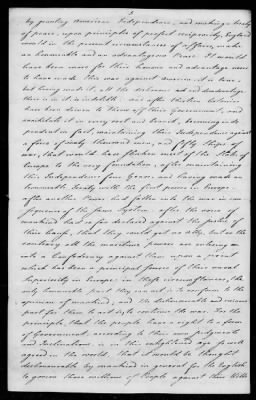 3
by granting American Independence, and making a treaty
of peace, upon principles of perfect reciprocity, England
would in the present circumstances of affairs, make
an honourable and an advantageous Peace. It would
have been more for their honour and advantage never
to have made this war against America, it is true
but having made it, all the dishonour and disadvantage
there is in it is indelible. and after thirteen Colonies
have been driven to throw off their Government, and
annihilate it in every root and branch, becoming inde
pendent in fact, maintaining their Independence against
a force of sixty thousand men, and fifty ships of
war, that would have shaken most of the States of
Europe to the very foundation, after maintaining
this Independence four years and having made an
honourable treaty with the first power in Europe.
after another Power had fallen into the war in con
sequence of the same System. after the voice of
mankind had so far declared against the justice of
their cause, that they could get no ally, but on the
contrary all the maritime powers are entering on
into a Confederacy against them upon a point
which has been a principal source of their naval
Superiority in Europe in these circumstances, the
only honourable part they can act is to conform to the
opinion of mankind; and the dishonourable and ruinous
part for them to act is to continue the war. For the
principle, that the people have a right to a form
of Government, according to their own judgments
and Inclinations is in this enlightened age so well
agreed in the world, that it would be thought
dishonourable by mankind in general for the English
to govern three millions of People against their Wills